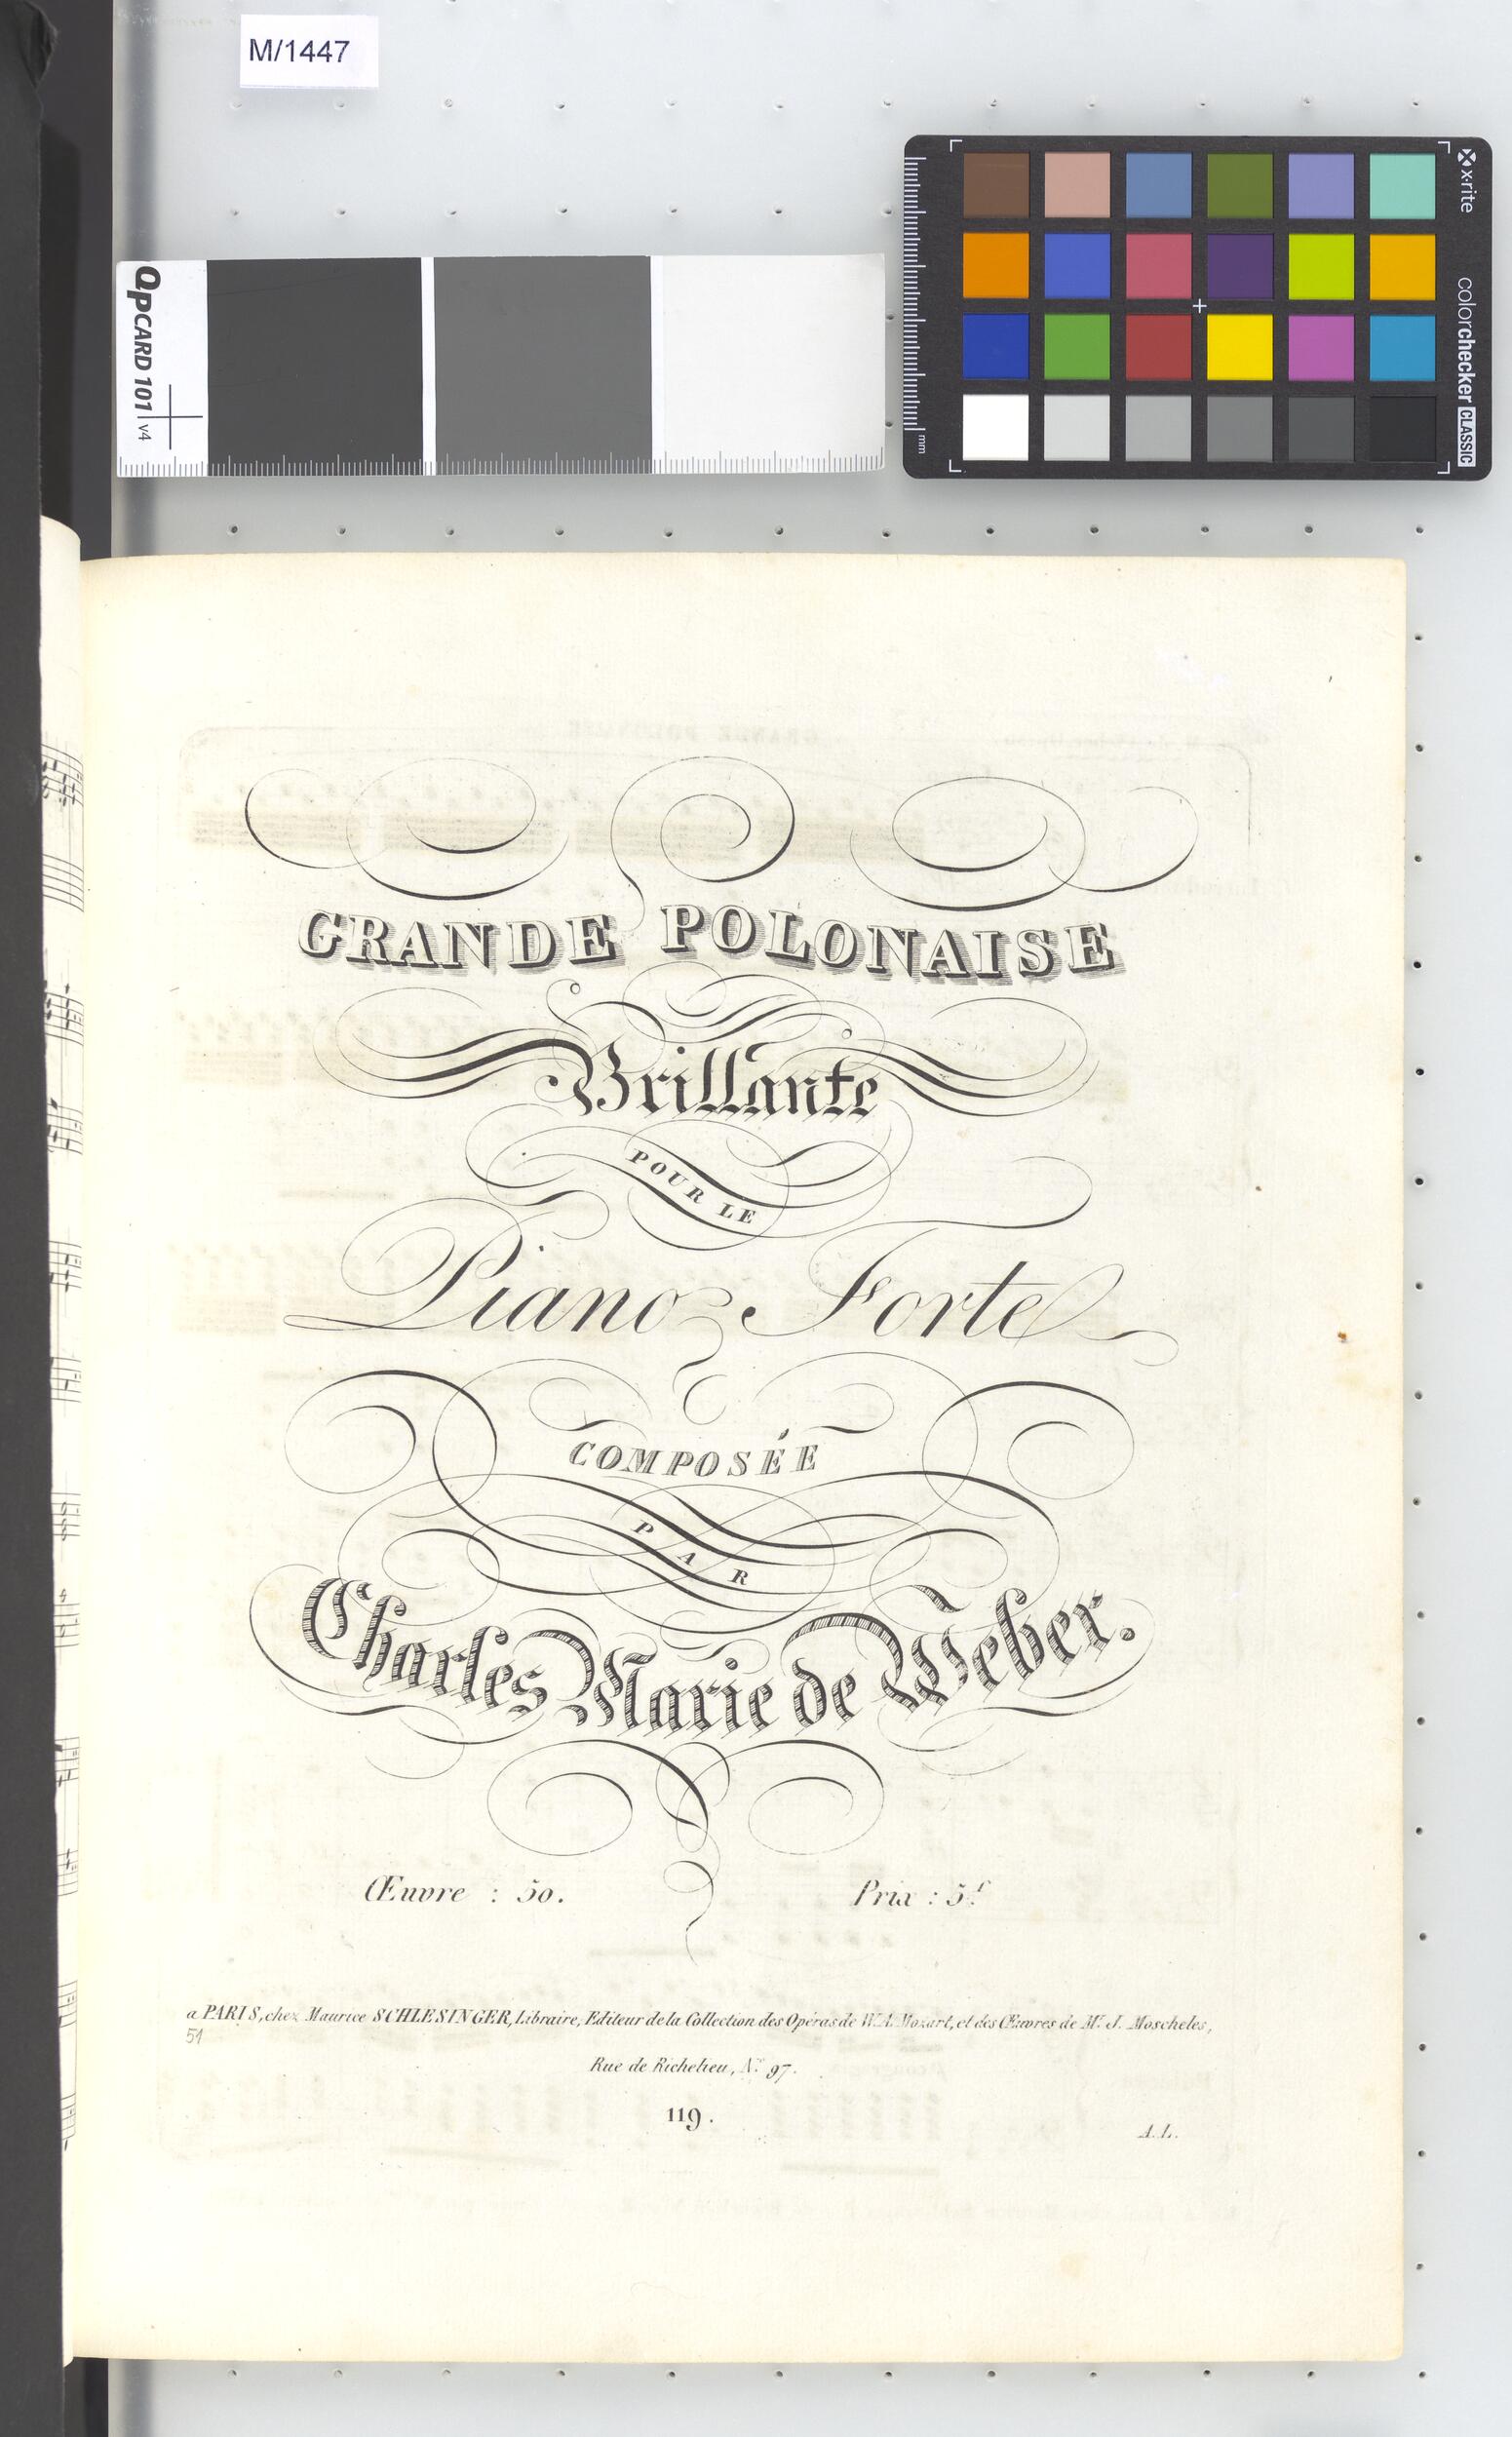 M/1447
QPCARD 101 v4
x-rite
colorchecker CLASSIC
mm
GRANDE POLONAISE
Brillante
POUR LE
Piano Forte
COMPOSÉE
PAR
Charles Marie de Weber.
Œuvre : 50. Prix : 5.f
a PARIS, chez Maurice SCHLESINGER, Libraire, Editeur de la Collection des Opéras de W. A. Mozart, et des Œuvres de Mr. J. Moscheles,
51
Rue de Richelieu, No. 97.
119.
A. L.